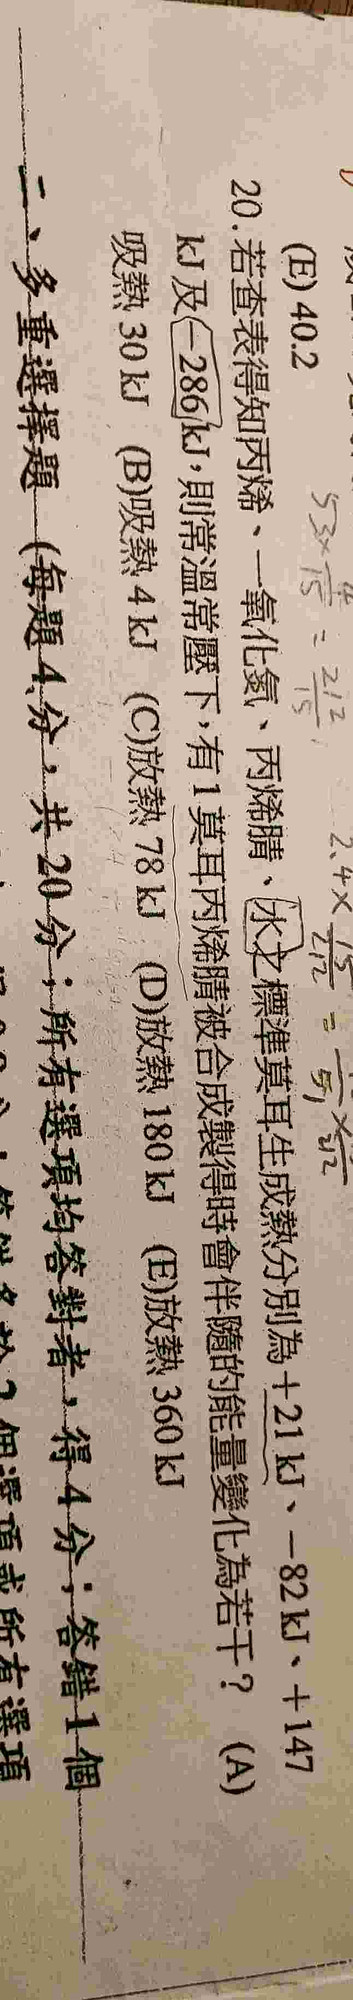 (E) 40.2
20.若查表得知丙烯、一氧化氮、丙烯腈、水之標準莫耳生成熱分別為+21 kJ、−82 kJ、+147
kJ及−286 kJ，則常溫常壓下，有1莫耳丙烯腈被合成製得時會伴隨的能量變化為若干？ (A)
吸熱30 kJ (B)吸熱4 kJ (C)放熱78 kJ (D)放熱180 kJ (E)放熱360 kJ
二、多重選擇題（每題4分，共20分；所有選項均答對者，得4分；答錯1個